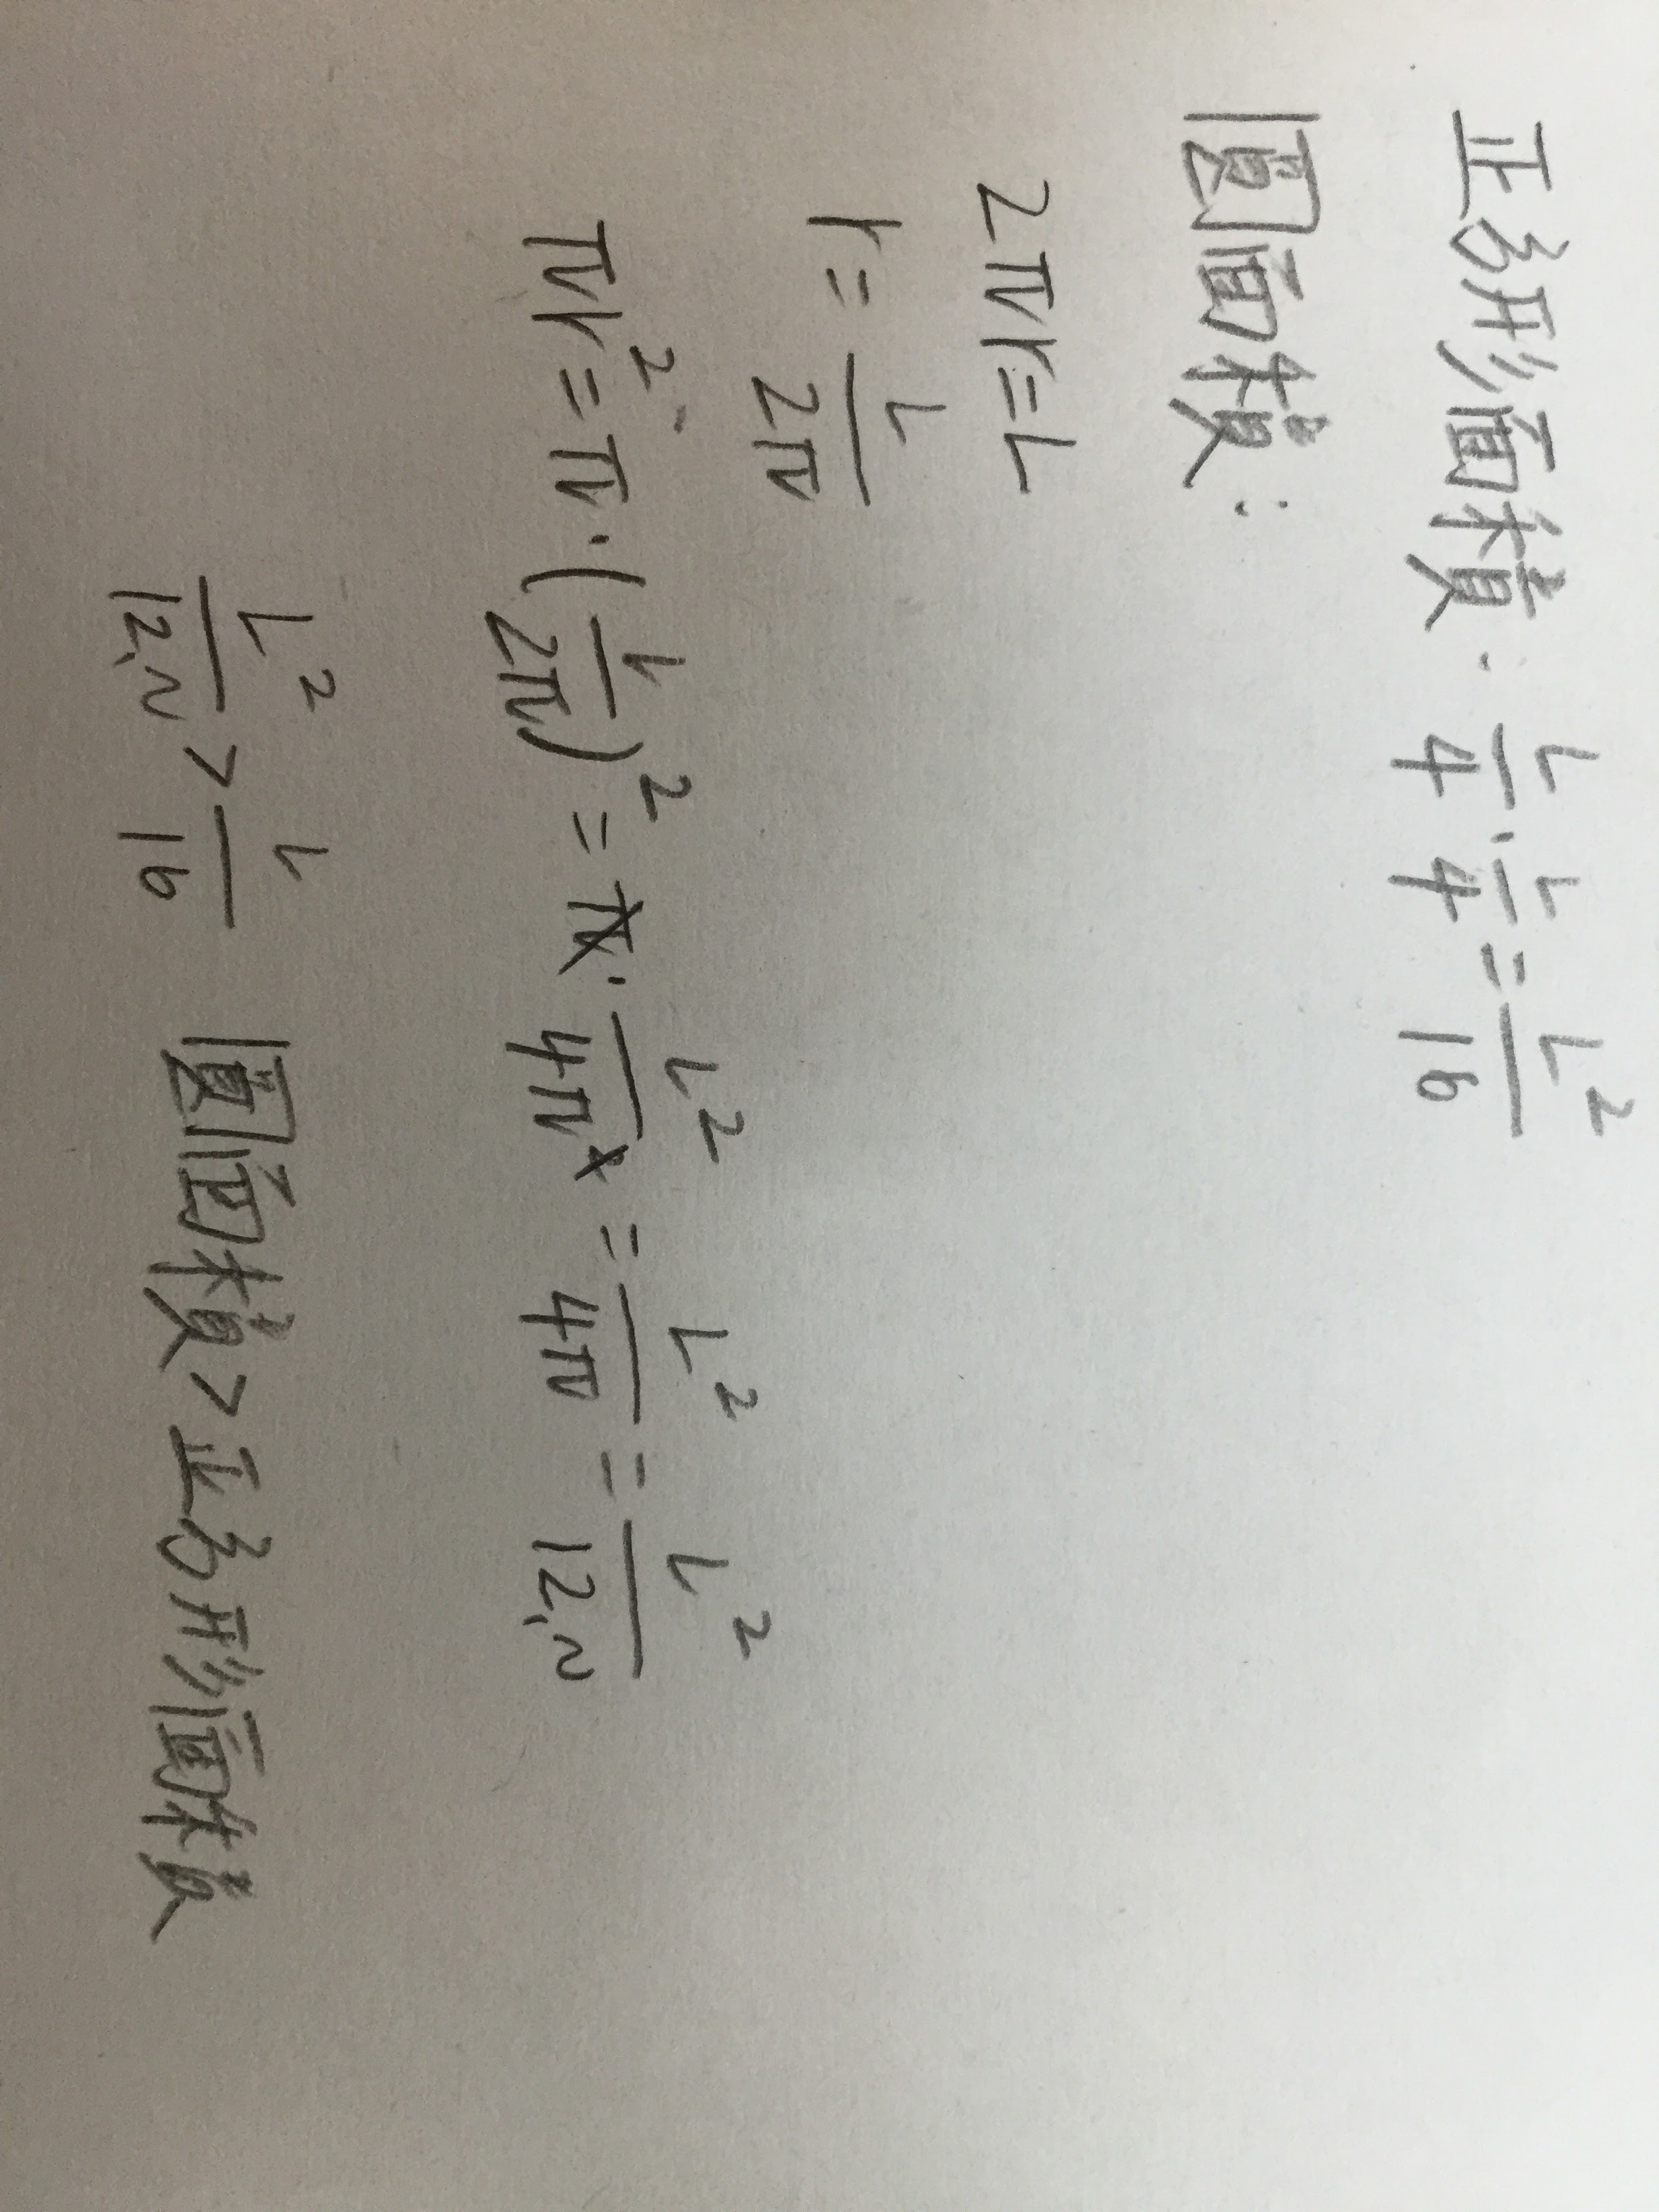 正多形面積: L/4·L/4=L²/16
圓面積:
2πr=L
r=L/2π
πr²=π·(L/2π)²=π·L²/4π²=L²/4π=L²/12.~
L²/12.~>L/16 圓面積>正多形面積